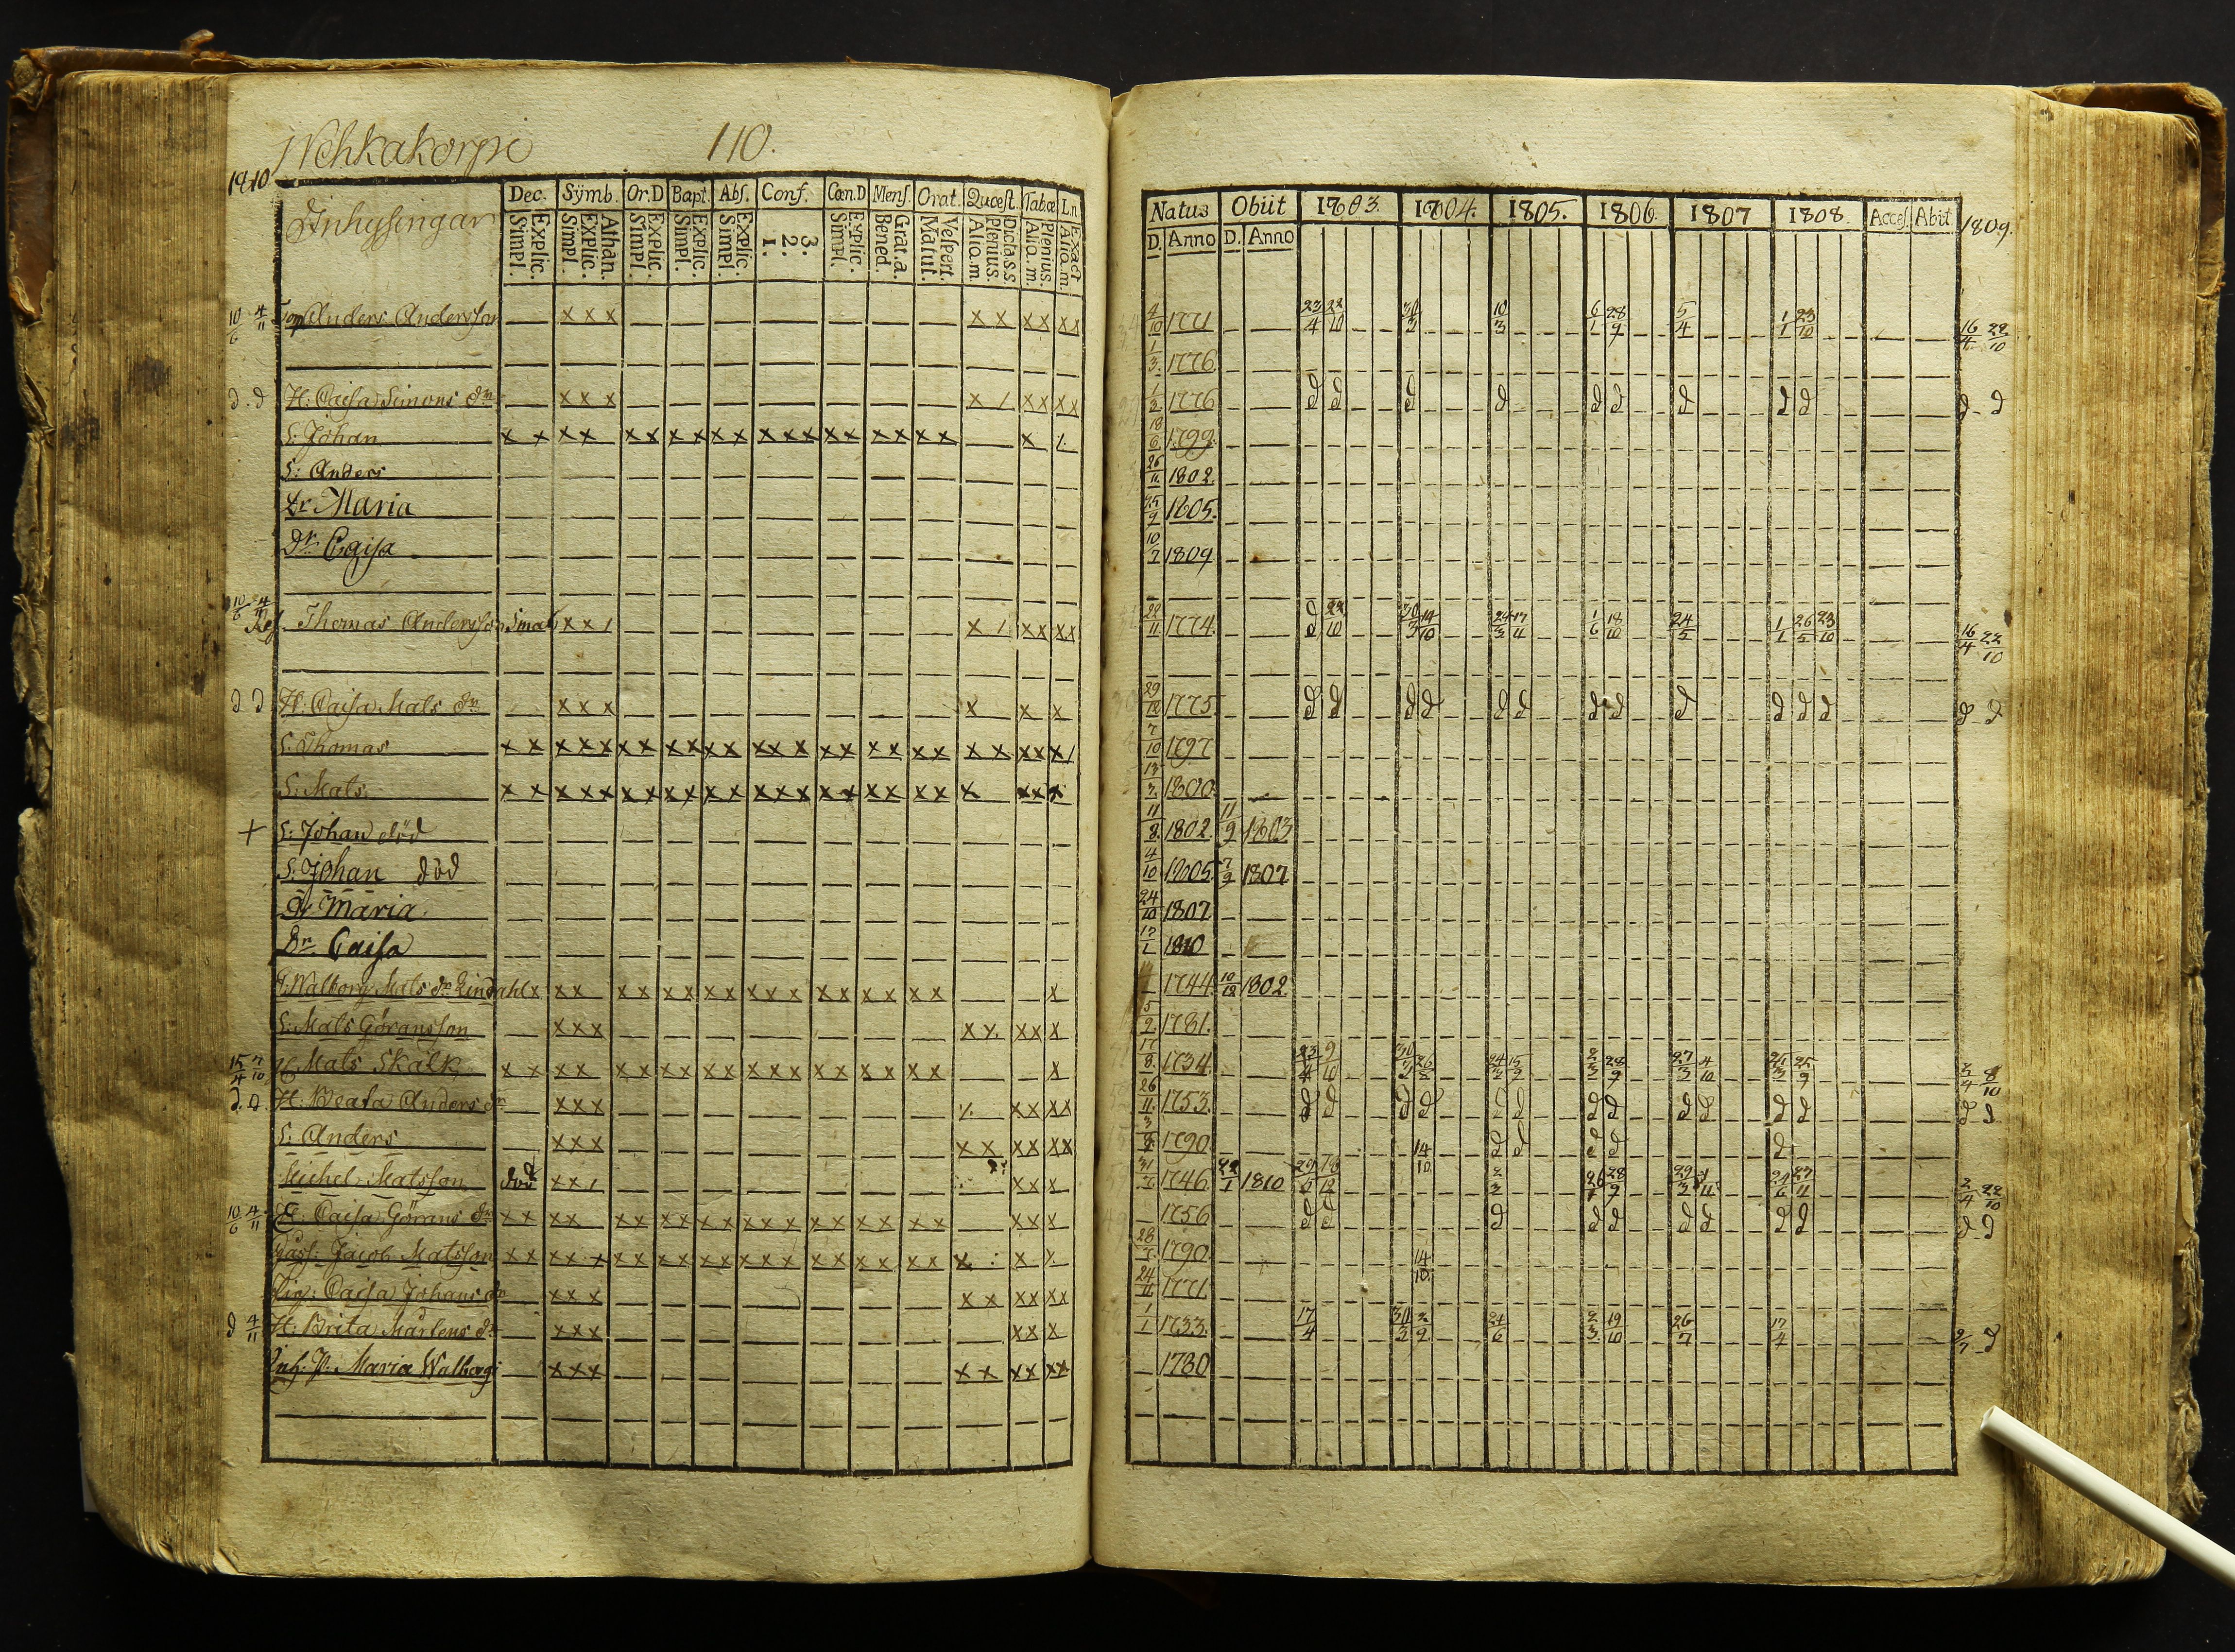 Wehkakorpi 110.
1810
Inhysingar Dec. Sÿmb. Or.D Bapt. Abs. Conf. Cœn.D Mens. Orat. Quœst. Tabœ L.n.
Explic. Simpl. Athan. Explic. Simpl. Explic. Simpl. Explic. Simpl. Explic. Simpl. 3. 2. 1. Explic. Simpl. Grat.a. Bened. Vespert. Matut. Dicta.s.s. Plenius. Aliq.m. Plenius. Aliq.m. Exact Aliq.m.
Natus Obiit 1803. 1804. 1805. 1806. 1807 1808. Acces. Abiit 1809.
D. Anno D. Anno
10/6 4/11 Anders Andersson x x x x x x x x x 4/10 1771 23/4 22/10 30/3 10/3 6/1 28/9 5/4 1/1 23/10 16/4 22/10
1/3. 1776
d. d H: Caisa Simons dr x x x x / x x x x 1/2 1776 d d d d d d d d d d d
S: Johan x x x x x x x x x x x x x x x x x x x x 18/6 1799.
S: Anders 26/11 1802.
Dr Maria 25/9 1805.
Dr Caisa 10/7 1809
10/6 4/11 Thomas Andersson Smal x x / x / x x x x 22/11 1774. d 22/10 30/3 14/10 24/3 17/11 1/6 18/10 24/5 1/1 26/5 23/10 16/4 22/10
d d H: Caisa Mats dr x x x x x x 29/12 1775 d d d d d d d d d d d d d d
S. Thomas x x x x x x x x x x x x x x x x x x x x x x x x x / 7/10 1797
S: Mats. x x x x x x x x x x x x x x x x x x x x x x x x 13/7. 1800.
+ S: Johan död 11/8. 1802. 11/9 1803
S. Johan död 4/10 1805 7/9 1807
Dr Maria. 24/10 1807.
Dr. Caisa 17/1 1810
Walborg Mats dr Lindahl x x x x x x x x x x x x x x x x x x x 1744 10/12 1802.
S: Mats Göransson x x x x x. x x x 5/2. 1781.
15/4 7/10 Mats Skalk x x x x x x x x x x x x x x x x x x x x 17/8. 1734. 23/4 9/10 30/3 26/8 24/3 15/9 2/3 28/9 27/3 4/10 25/9 2/4 8/10
d. d. H: Beata Anders dr x x x x x x x 26/11. 1753. d d d d d d d d d d d d d d
S: Anders x x x x x x x x x 1790 14/10. d d d d d
Michel Matsson död x x / x x x 1746. 22/1 1810 2/3 28/9 2/4 22/10
10/6 4/11 Caisa Görans dr x x x x x x x x x x x x x x x x x x x x x x 1756 d d d d d d d d d d d
Jacob Matsson x x x x x x x x x x x x x x x x x x x x x x 28/7. 1790. 14/10.
Pig: Caisa Johans dr x x x x x x x x x 24/11 1771.
d 4/11 H: Brita Mårtens dr x x x x x x 1/1 1733. 17/4 30/3 2/9 24/6 2/3. 19/10 26/7 17/4 d
Inh: P. Maria Walborg x x x x x x x x x 1780